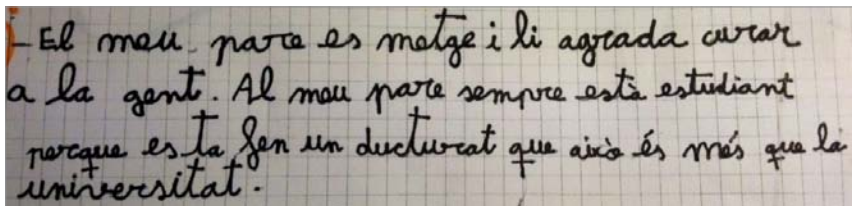 - El meu pare es metge i li agrada curar
a la gent. Al meu pare sempre està estudiant
perque es ta fen un ducturat que això és més que la
universitat.